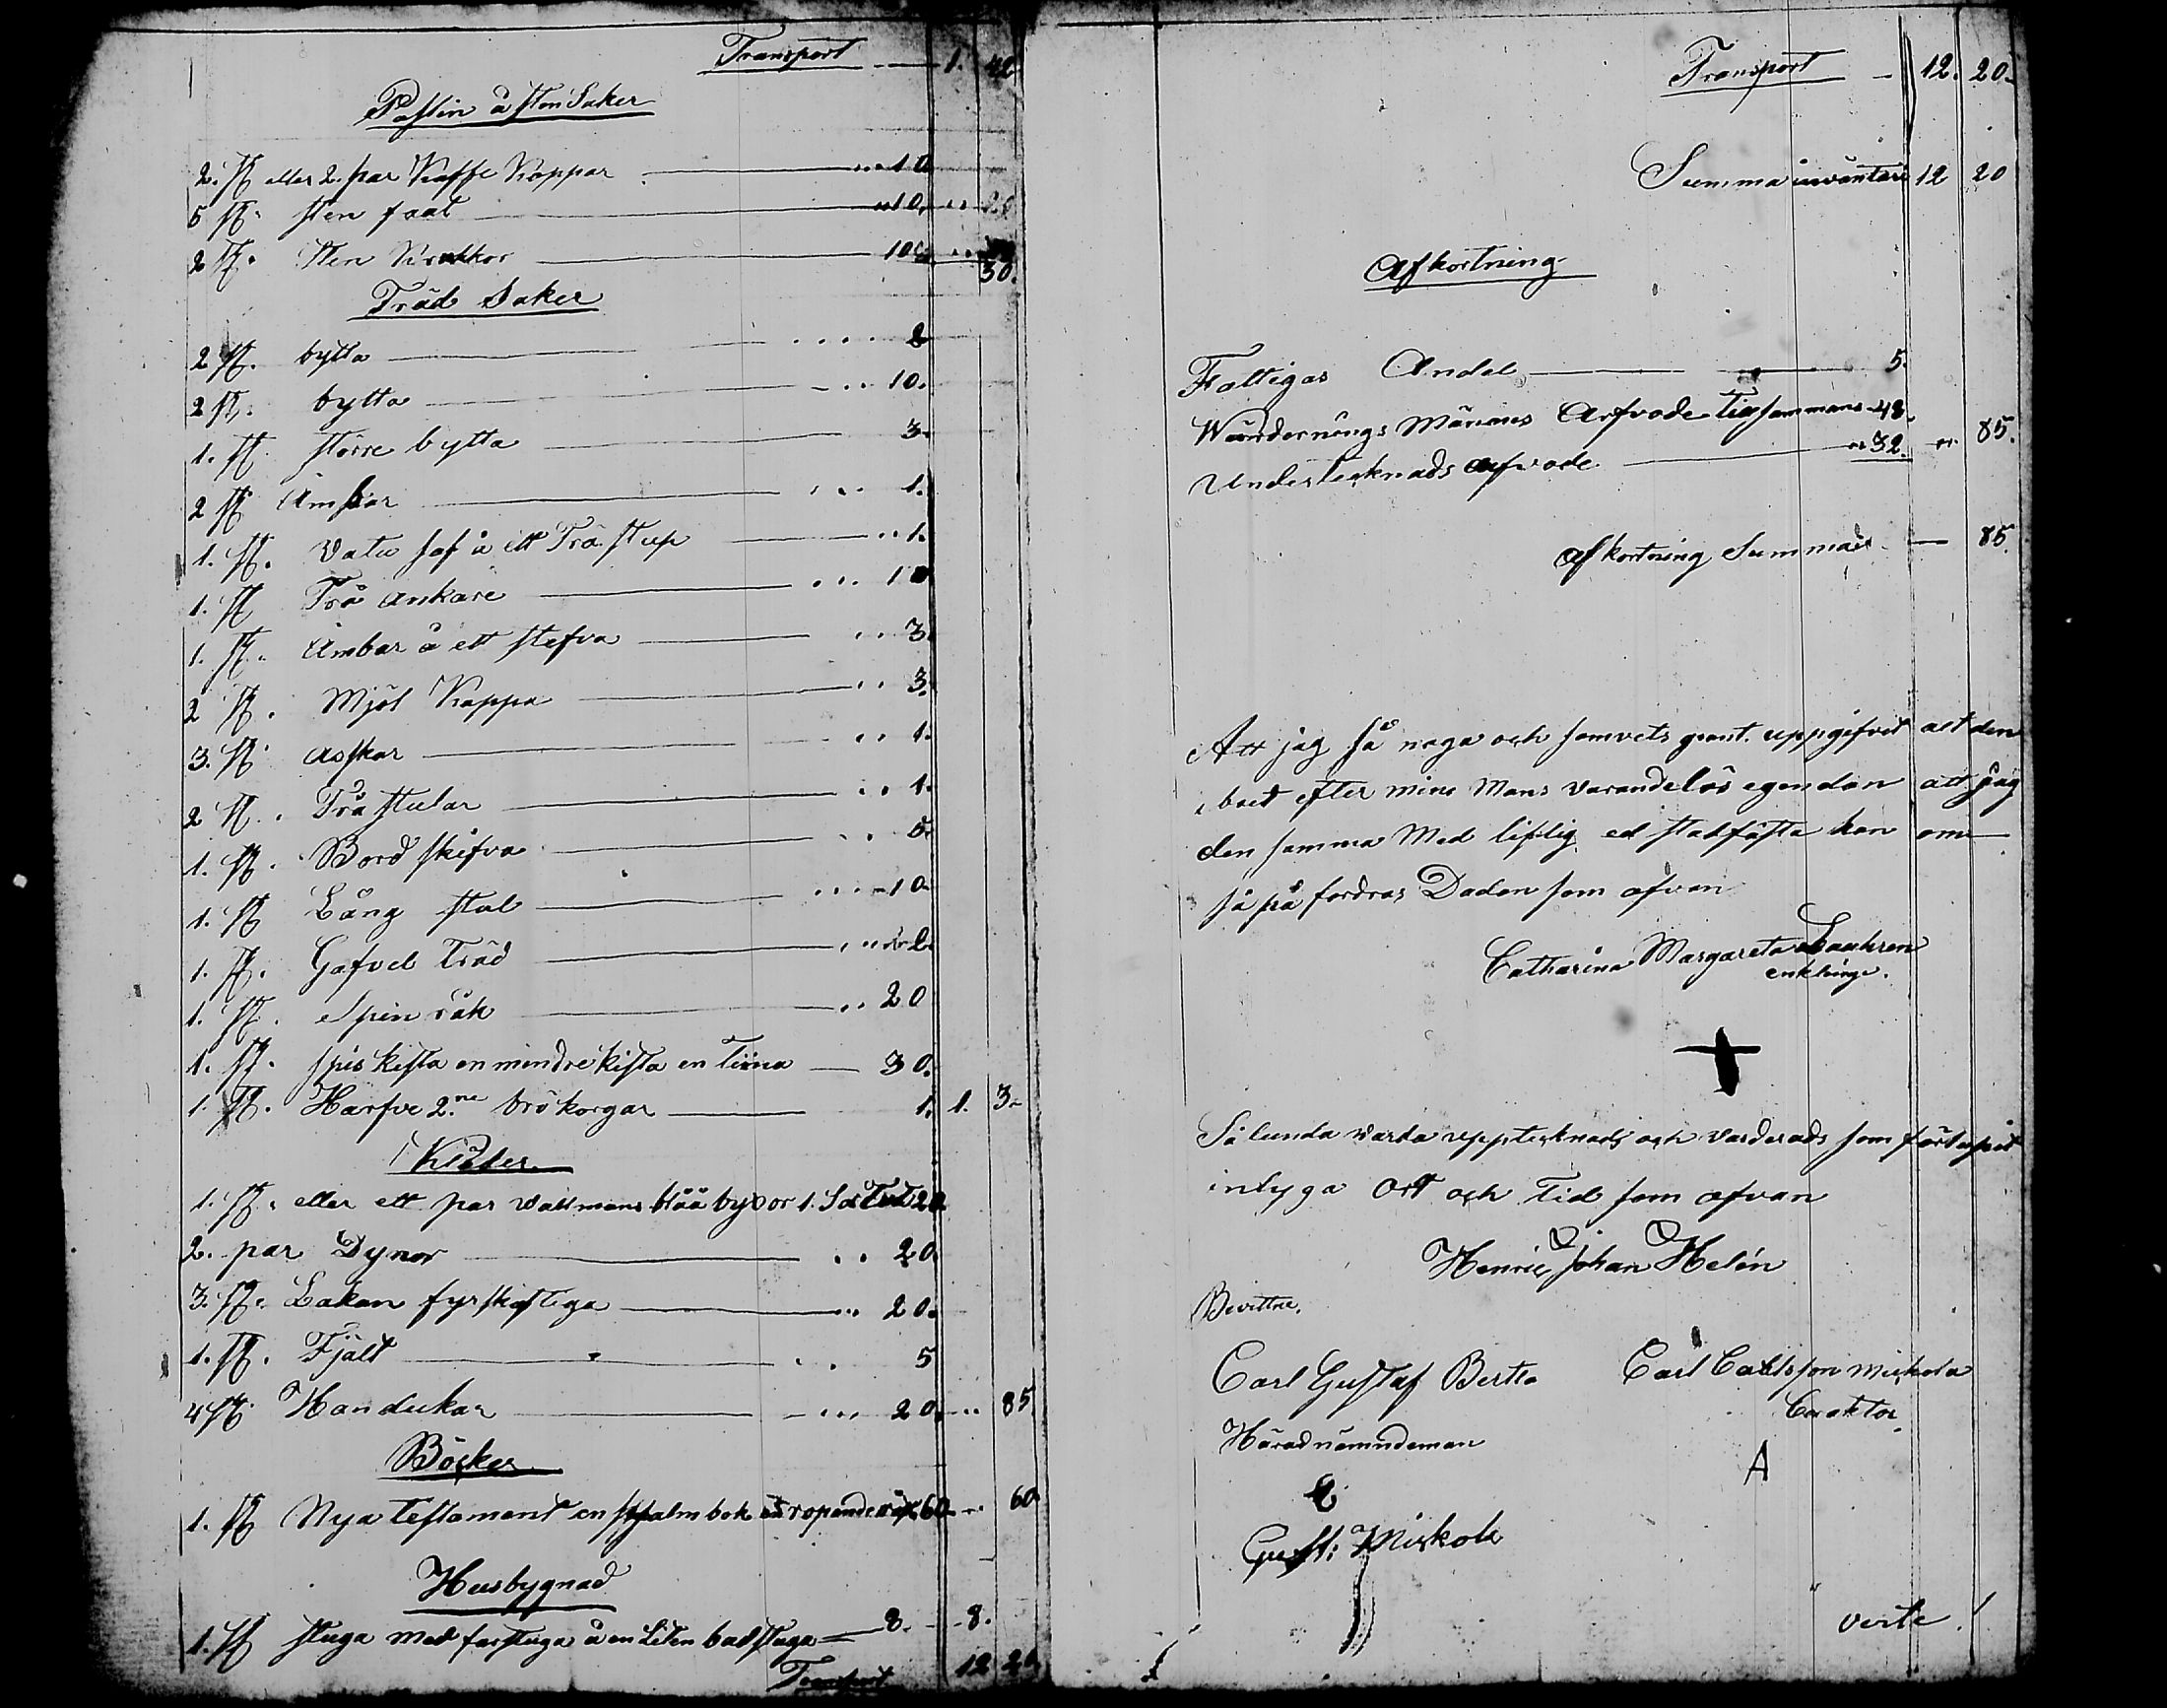 Transport 1. 42
Postlin å sten Saker
2. st eller 2. par Kaffe Koppar 10
5 st. sten faat 10.
2 st. Sten Krukkor 10 30.
Träd Saker
2 st. bytta
2 st. bytta 10.
1. st. större bytta 3.
2 st Ämbar 1.
1. st. Vatu saf å ett Trä stup 1.
1. st Trä ankare
1. st. Ämbar å ett stefva 3.
2 st. Mjöl Kappa 3.
3. st. asskar 1.
2 st. Trä stular 1.
1. st. Bord skifva 5.
1. st Lång stol 10.
1. st. Gafvel Träd
1. st. Spin råk 20
1. st. spis kista en mindre kista en Tiina 30.
1. st. Harfve 2.ne brö korgar 1. 1. 3
Kläder
1. st. eller ett par vallmans blåå byxor 1.
2. par Dynor 20
3. st. Lakan fyrskaftiga 20.
1. st. Fjält 5
4 st. Handukar 20. 85
Böcker
1. st Nya Testament en psalmbok en ropande röst 60 60
Husbygnad
1. st stuga med farstuga å en Liten badstuga 8. 8.
Transport 12 20
Transport 12. 20
Summa inventari 12 20
Afkortning
Fattigas Andel 5.
Wärdernings Männens Arfvode Tilsammans 48.
Undertecknads arfvode 32. 85.
Afkortning Summa 85.
Att jag så noga och samvets grant uppgifvit alt den
i boet efter mine Mans varande lös egendon att jag
den samma Med liflig ed stadfästa kan om
så på fordras Dadon som ofvan
Catharina Margareta
enklinge.
Så lunda varda upptecknads och varderads som förlupit
intyga Ort och Tid som ofvan
Henric Johan Helén
Bevittne.
Carl Gustaf Bertla Carl Carlsson Mickola
Häradnämndeman Curator
A
Gust: Mickola
verte